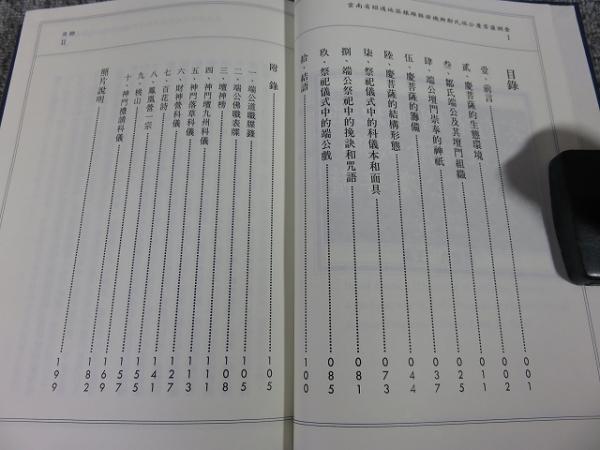 雲南省昭通地區鎮雄縣潑機鄉鄒氏端公慶菩薩調查 I
目錄
壹、前言 001
貳、慶菩薩的生態環境 002
叁、鄒氏端公及其壇門組織 011
肆、端公壇門崇奉的神祇 025
伍、慶菩薩的籌備 037
陸、慶菩薩的結構形態 044
柒、祭祀儀式中的科儀本和面具 073
捌、端公祭祀中的挽訣和咒語 081
玖、祭祀儀式中的端公戲 085
拾、結語 100
目錄 II
附錄 105
一、端公道職牒錄 105
二、端公佛職表牒 108
三、壇神榜 111
四、神門壇九州科儀 113
五、神門落草科儀 127
六、財神營科儀 141
七、百花詩 155
八、鳳凰營一宗 157
九、桃山 169
十、神門禮請科儀 182
照片說明 199